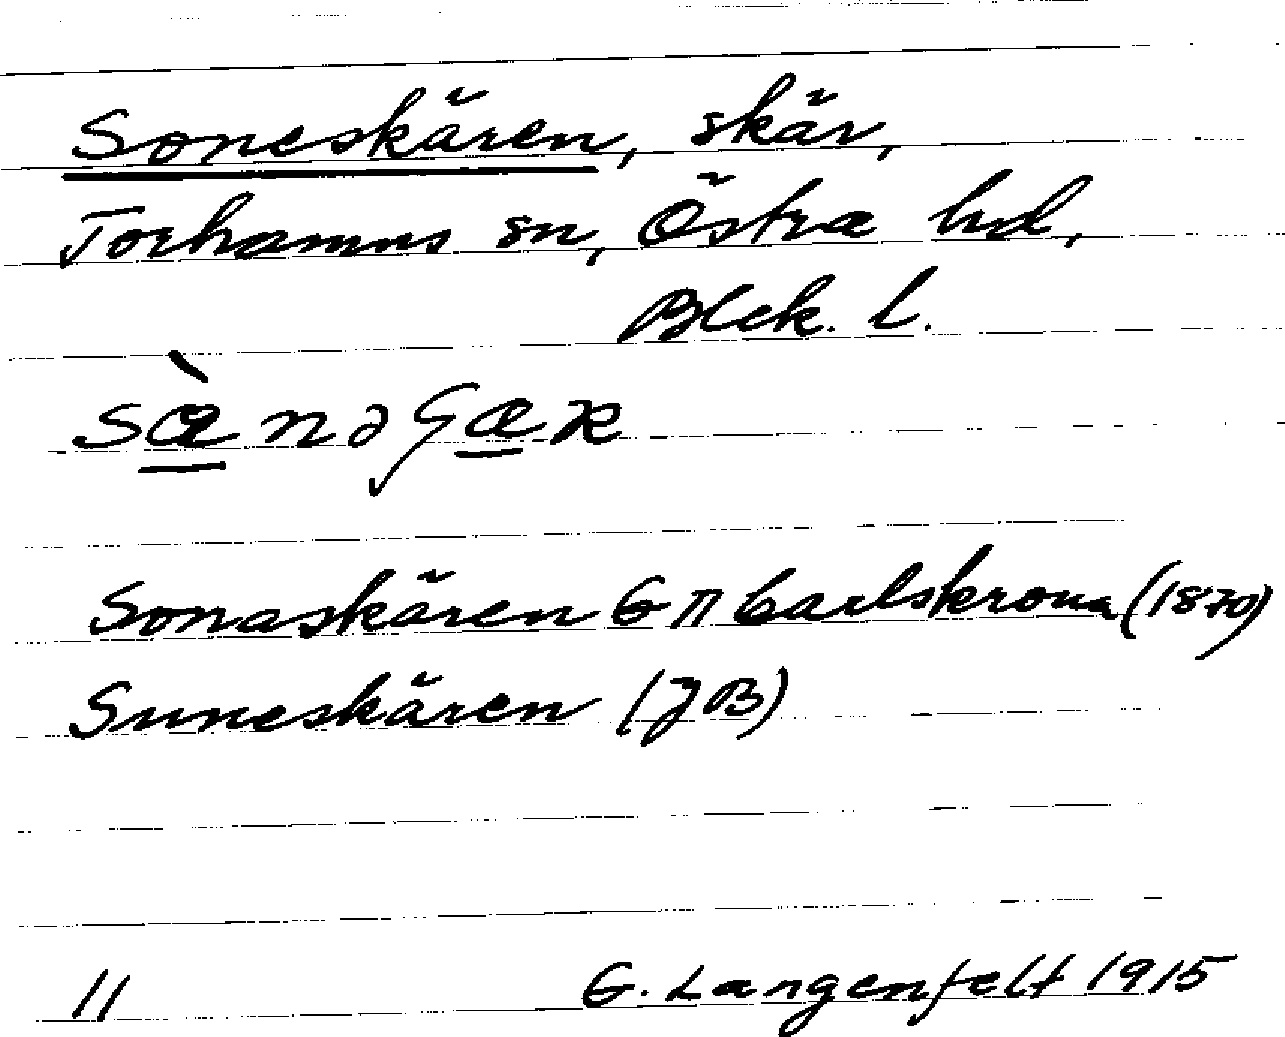 Soneskären, skär,
Torhamns sn, Östra hd,
Blek. l.
Sonaskären G π Carlskrona (1870)
Suneskären (JB)
11 G. Langenfelt 1915